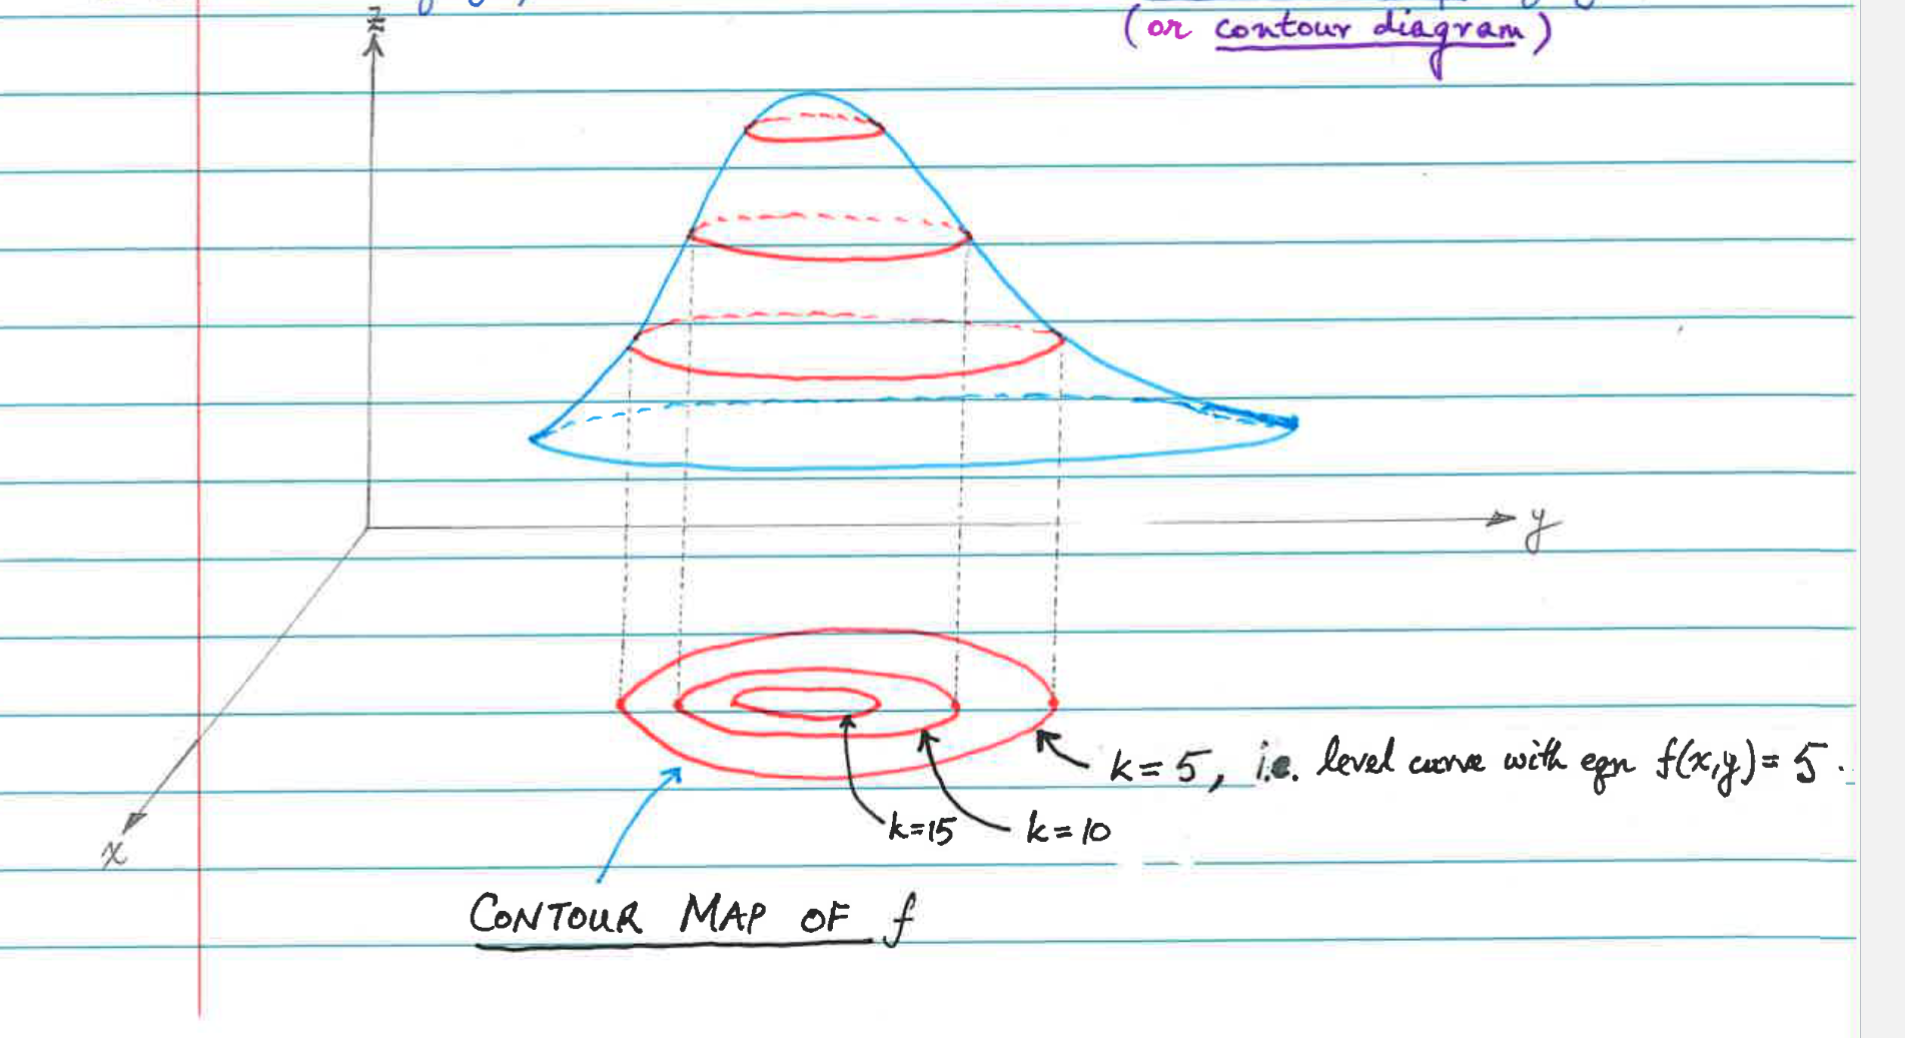 z
(or contour diagram)
y
k = 5, i.e. level curve with eqn f(x,y) = 5.
k=15
k = 10
x
CONTOUR MAP OF f